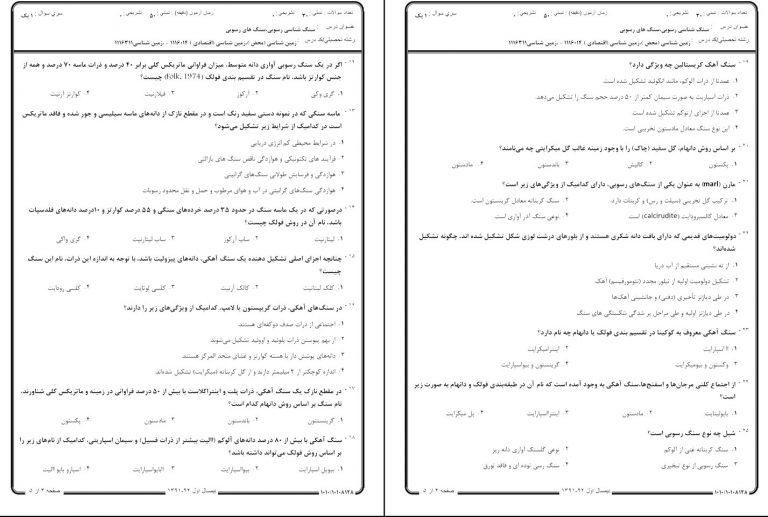 سری سوال : ۱ یک
زمان آزمون (دقیقه) : تستی : ۵۰ تشریحی : ۰
تعداد سوالات : تستی : ۳۰ تشریحی : ۰
عنوان درس : سنگ شناسی رسوبی،سنگ های رسوبی
رشته تحصیلی/کد درس : زمین شناسی (محض )،زمین شناسی (اقتصادی ) ۱۱۱۶۰۱۴ - ،زمین شناسی۱۱۱۶۳۱۱
۱۲- اگر در یک سنگ رسوبی آواری دانه متوسط، میزان فراوانی ماتریکس گلی برابر ۴۰ درصد و ذرات ماسه ۷۰ درصد و همه از
جنس کوارتز باشد، نام سنگ در تقسیم بندی فولک (Folk, 1974) چیست؟
۱. گری وکی ۲. آرکوز ۳. فیلارنیت ۴. کوارتز آرنیت
۱۳- ماسه سنگی که در نمونه دستی سفید رنگ است و در مقطع نازک از دانه‌های ماسه سیلیسی و جور شده و فاقد ماتریکس
است در کدامیک از شرایط زیر تشکیل می‌شود؟
۱. در شرایط محیطی کم انرژی دریایی
۲. فرآیند های تکتونیکی و هوازدگی ناقص سنگ های بازالتی
۳. هوازدگی و فرسایش طولانی سنگ‌های گرانیتی
۴. هوازدگی سنگ‌های گرانیتی در آب و هوای مرطوب و حمل و نقل محدود رسوبات
۱۴- درصورتی که در یک ماسه سنگ در حدود ۳۵ درصد خرده‌های سنگی و ۵۵ درصد کوارتز و ۱۰درصد دانه‌های فلدسپات
باشد، نام آن در روش فولک چیست؟
۱. لیتارنیت ۲. ساب آرکوز ۳. ساب لیتارنیت ۴. گری واکی
۱۵- چنانچه اجزای اصلی تشکیل دهنده یک سنگ آهکی، دانه‌های پیزولیت باشد، با توجه به اندازه این ذرات، نام این سنگ
چیست؟
۱. کلک لیتانیت ۲. کالک آرنیت ۳. کلسی لوتایت ۴. کلسی رودایت
۱۶- در سنگ‌های آهکی، ذرات گریپستون یا لامپ، کدامیک از ویژگی‌های زیر را دارند؟
۱. اجتماعی از ذرات صدف دوکفه‌ای هستند.
۲. از بهم پیوستن ذرات پلوئید و اووئید تشکیل می‌شوند.
۳. دانه‌های پوشش دار با هسته کوارتز و غشای متحد المرکز هستند.
۴. اندازه کوچکتر از ۲ میلیمتر دارند و از گل کربناته (میکرایت) تشکیل شده‌اند.
۱۷- در مقطع نازک یک سنگ آهکی، ذرات پلت و اینتراکلاست با بیش از ۵۰ درصد فراوانی در زمینه و ماتریکس گلی شناورند،
نام سنگ بر اساس روش دانهام کدام است؟
۱. گرینستون ۲. باندستون ۳. مادستون ۴. پکستون
۱۸- سنگ آهکی با بیش از ۸۰ درصد دانه‌های آلوکم (االیت بیشتر از ذرات فسیل) و سیمان اسپاریتی، کدامیک از نام‌های زیر را
بر اساس روش فولک می‌تواند داشته باشد؟
۱. بیوپل اسپارایت ۲. بیواسپارایت ۳. االیایواسپارایت ۴. اسپارو بایو االیت
صفحه ۲ از ۵ نیمسال اول ۹۲-۱۳۹۱ ۱۰۱۰/۱۰۱۰۸۱۴۸
سری سوال : ۱ یک
زمان آزمون (دقیقه) : تستی : ۵۰ تشریحی : ۰
تعداد سوالات : تستی : ۳۰ تشریحی : ۰
عنوان درس : سنگ شناسی رسوبی،سنگ های رسوبی
رشته تحصیلی/کد درس : زمین شناسی (محض )،زمین شناسی (اقتصادی ) ۱۱۱۶۰۱۴ - ،زمین شناسی۱۱۱۶۳۱۱
۱۹- سنگ آهک کریستالین چه ویژگی دارد؟
۱. عمدتا از ذرات آلوکم، مانند انکوئید تشکیل شده است.
۲. ذرات اسپاریت به صورت سیمان کمتر از ۵۰ درصد حجم سنگ را تشکیل می‌دهد.
۳. عمدتا از اجزای ارتوکم تشکیل شده است.
۴. این نوع سنگ معادل مادستون تخریبی است.
۲۰- بر اساس روش دانهام، گل سفید (چاک) را با وجود زمینه غالب گل میکرایتی چه می‌نامند؟
۱. پکستون ۲. کالیش ۳. باندستون ۴. مادستون
۲۱- مارن (marl) به عنوان یکی از سنگ‌های رسوبی، دارای کدامیک از ویژگی‌های زیر است؟
۱. ترکیب گل تخریبی (سیلت و رس) و کربنات دارد. ۲. سنگ کربناته معادل گرینستون است.
۳. معادل کالسیرودایت (calcirudite) است. ۴. نوعی سنگ آذر آواری است.
۲۲- دولومیت‌های قدیمی که دارای بافت دانه شکری هستند و از بلورهای درشت لوزی شکل تشکیل شده اند، چگونه تشکیل
شده‌اند؟
۱. از ته نشینی مستقیم از آب دریا
۲. تشکیل دولومیت اولیه از تبلور مجدد (نئومورفیسم) آهک
۳. در طی دیاژنز تأخیری (دفنی) و جانشینی آهک‌ها
۴. در طی دیاژنز اولیه و طی مراحل پر شدگی شکستگی های سنگ
۲۳- سنگ آهکی معروف به کوکینا در تقسیم بندی فولک یا دانهام چه نام دارد؟
۱. االاسپارایت ۲. اینترامیکرایت
۳. وکستون و بیومیکرایت ۴. گرینستون و بیواسپارایت
۲۴- از اجتماع کلنی مرجان‌ها و اسفنج‌ها،سنگ آهکی به وجود آمده است که نام آن در طبقه‌بندی فولک و دانهام به صورت زیر
است؟
۱. بایولیتایت ۲. مادستون ۳. اینترااسپارایت ۴. پل میکرایت
۲۵- شیل چه نوع سنگ رسوبی است؟
۱. سنگ کربناته غنی از آلوکم ۲. نوعی گلسنگ آواری دانه ریز
۳. سنگ رسوبی از نوع تبخیری ۴. سنگ رسی توده ای و فاقد تورق
صفحه ۳ از ۵ نیمسال اول ۹۲-۱۳۹۱ ۱۰۱۰/۱۰۱۰۸۱۴۸